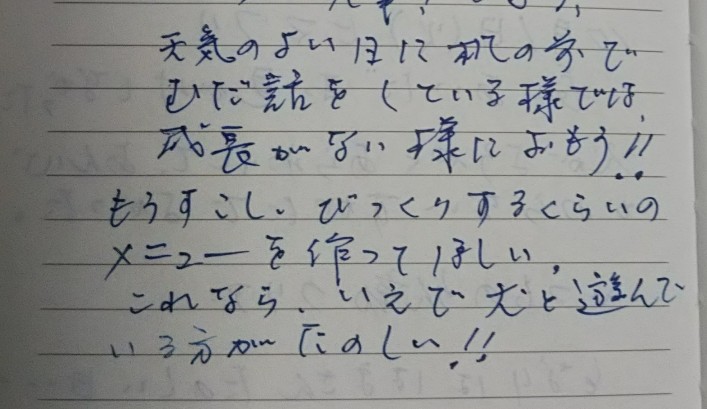 天気のよい日に机の前で
むだ話をしている様では
成長がない様におもう!!
もうすこし、びっくりするくらいの
メニューを作ってほしい。
これなら、いえで犬と遊んで
いる方がたのしい!!